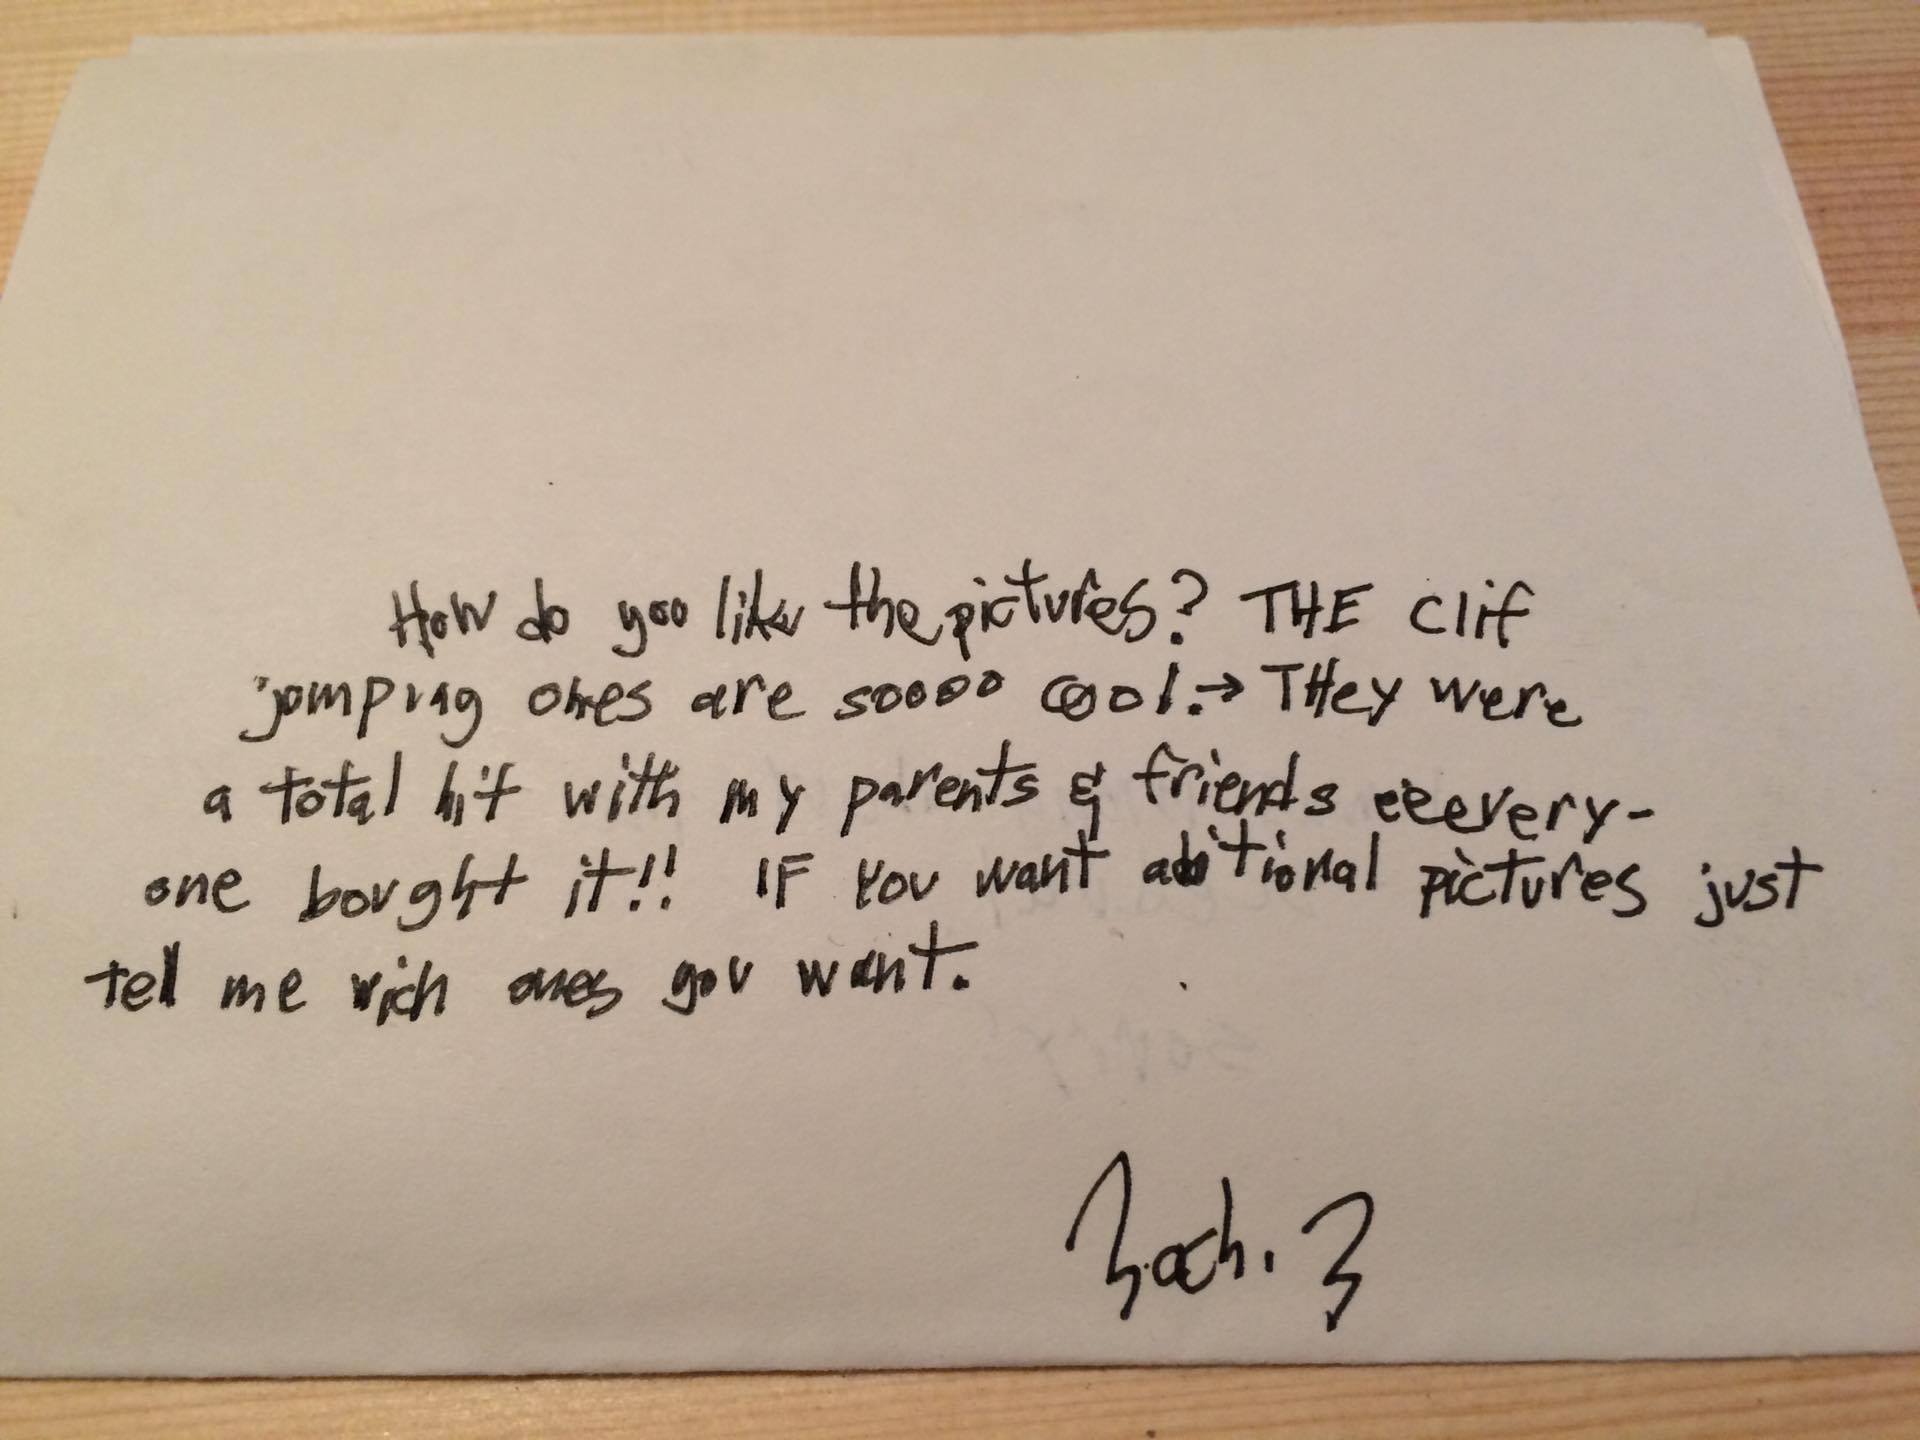 How do yoo like the pictures? THE Clif
jomping ones are soooo cool.→ THey were
a total hit with my parents & friends eeevery-
one bought it!! IF you want aditional pictures just
tell me wich ones you want.
Zach. Z